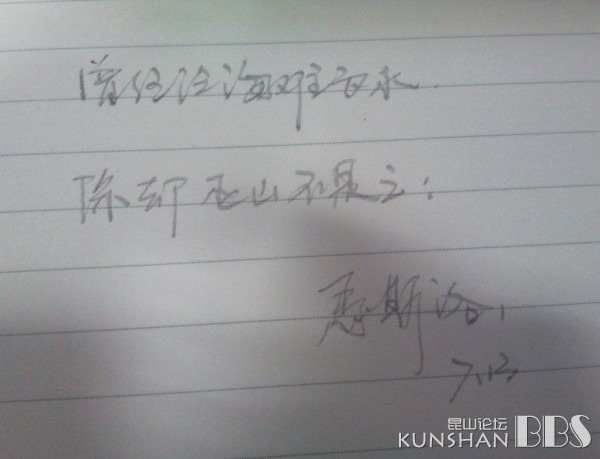 曾经沧海难为水.
除却巫山不是云;
7.12
昆山论坛
KUNSHAN BBS